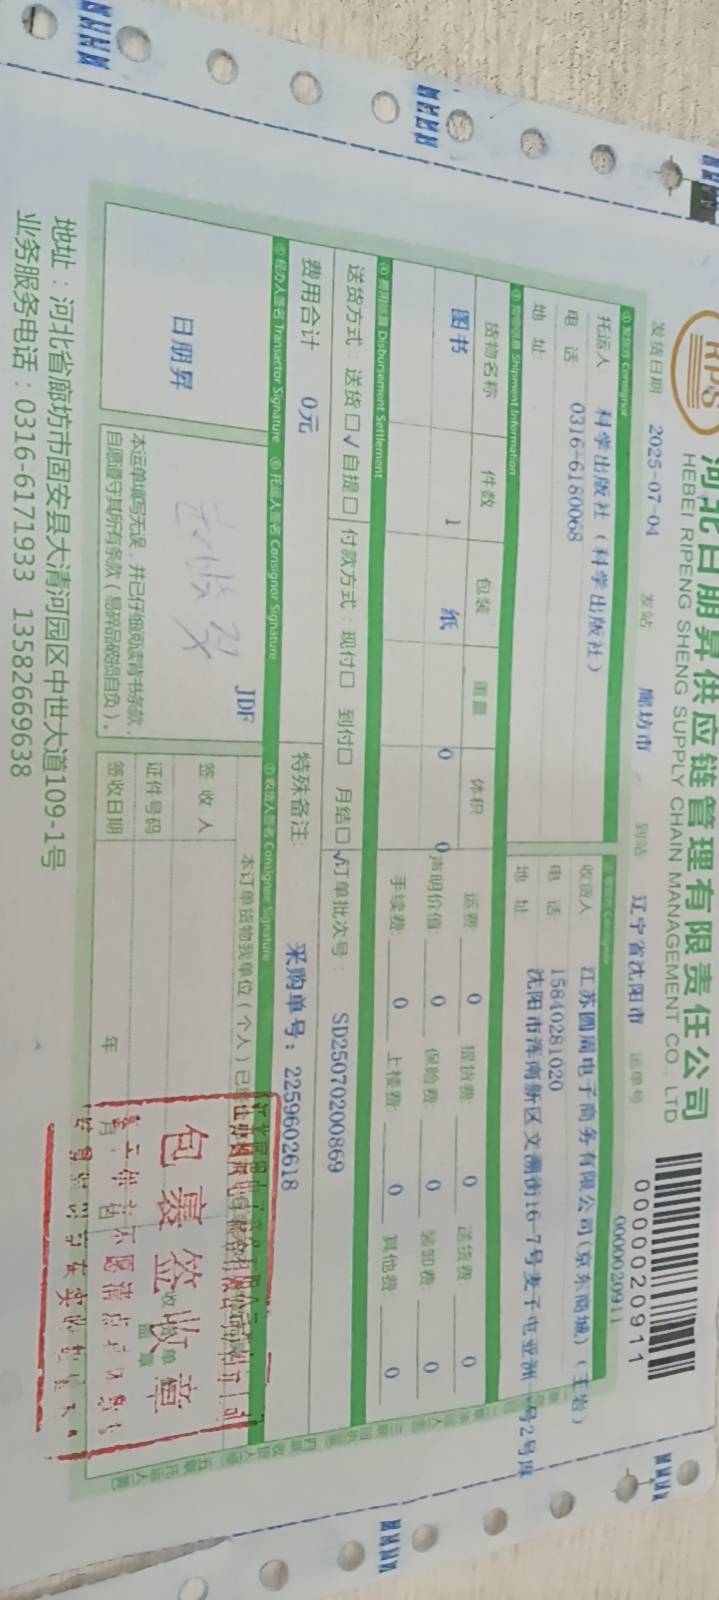 RPS
河北日朋昇供应链管理有限责任公司
HEBEI RIPENG SHENG SUPPLY CHAIN MANAGEMENT CO., LTD
0000020911
发货日期 2025-07-04 发站 廊坊市 到站 辽宁省沈阳市 运单号 0000020911
① 发货方 Consignor
托运人 科学出版社（科学出版社）
收货人 江苏圆周电子商务有限公司(京东商城)（王岩）
电 话 0316-6180068
电 话 15840281020
地 址
地 址 沈阳市浑南新区文溯街16-7号麦子屯亚洲一号2号库
③ 货物信息 Shipment Information
货物名称 件数 包装 重量 体积
运费: 0 提货费: 0 送货费: 0
图书 1 纸 0 0
声明价值: 0 保险费: 0 装卸费: 0
手续费: 0 上楼费: 0 其他费: 0
④ 费用结算 Disbursement Settlement
送货方式：送货□√自提□ 付款方式：现付□ 到付□ 月结□√
订单批次号： SD25070200869
费用合计 0元
特殊备注: 采购单号：2259602618
⑤ 经办人签名 Transactor Signature
⑥ 托运人签名 Consignor Signature
⑦ 收货人签名 Consignee Signature
日朋昇
JDF
本订单货物我单位（个人）已
签 收 人
证件号码
签收日期 年 月
包裹签收章
本运单填写无误，并已仔细阅读背书条款，
自愿遵守其所有条款（易碎品破损自负）。
地址：河北省廊坊市固安县大清河园区中世大道109-1号
业务服务电话：0316-6171933 13582669638